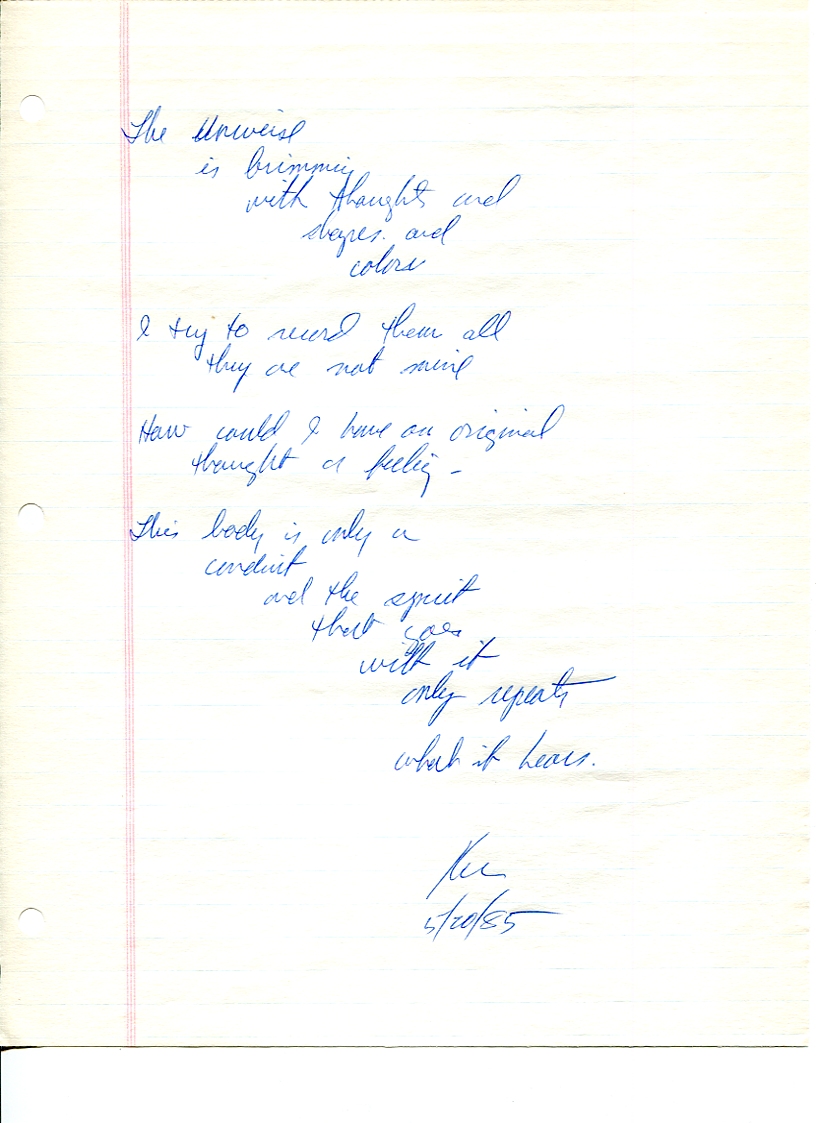 The Universe
is brimming
with thoughts and
shapes and
colors
I try to record them all
they are not mine
How could I have an original
thought or feeling -
This body is only a
conduit
and the spirit
that goes
with it
only repeats
what it hears.
Ken
5/20/85